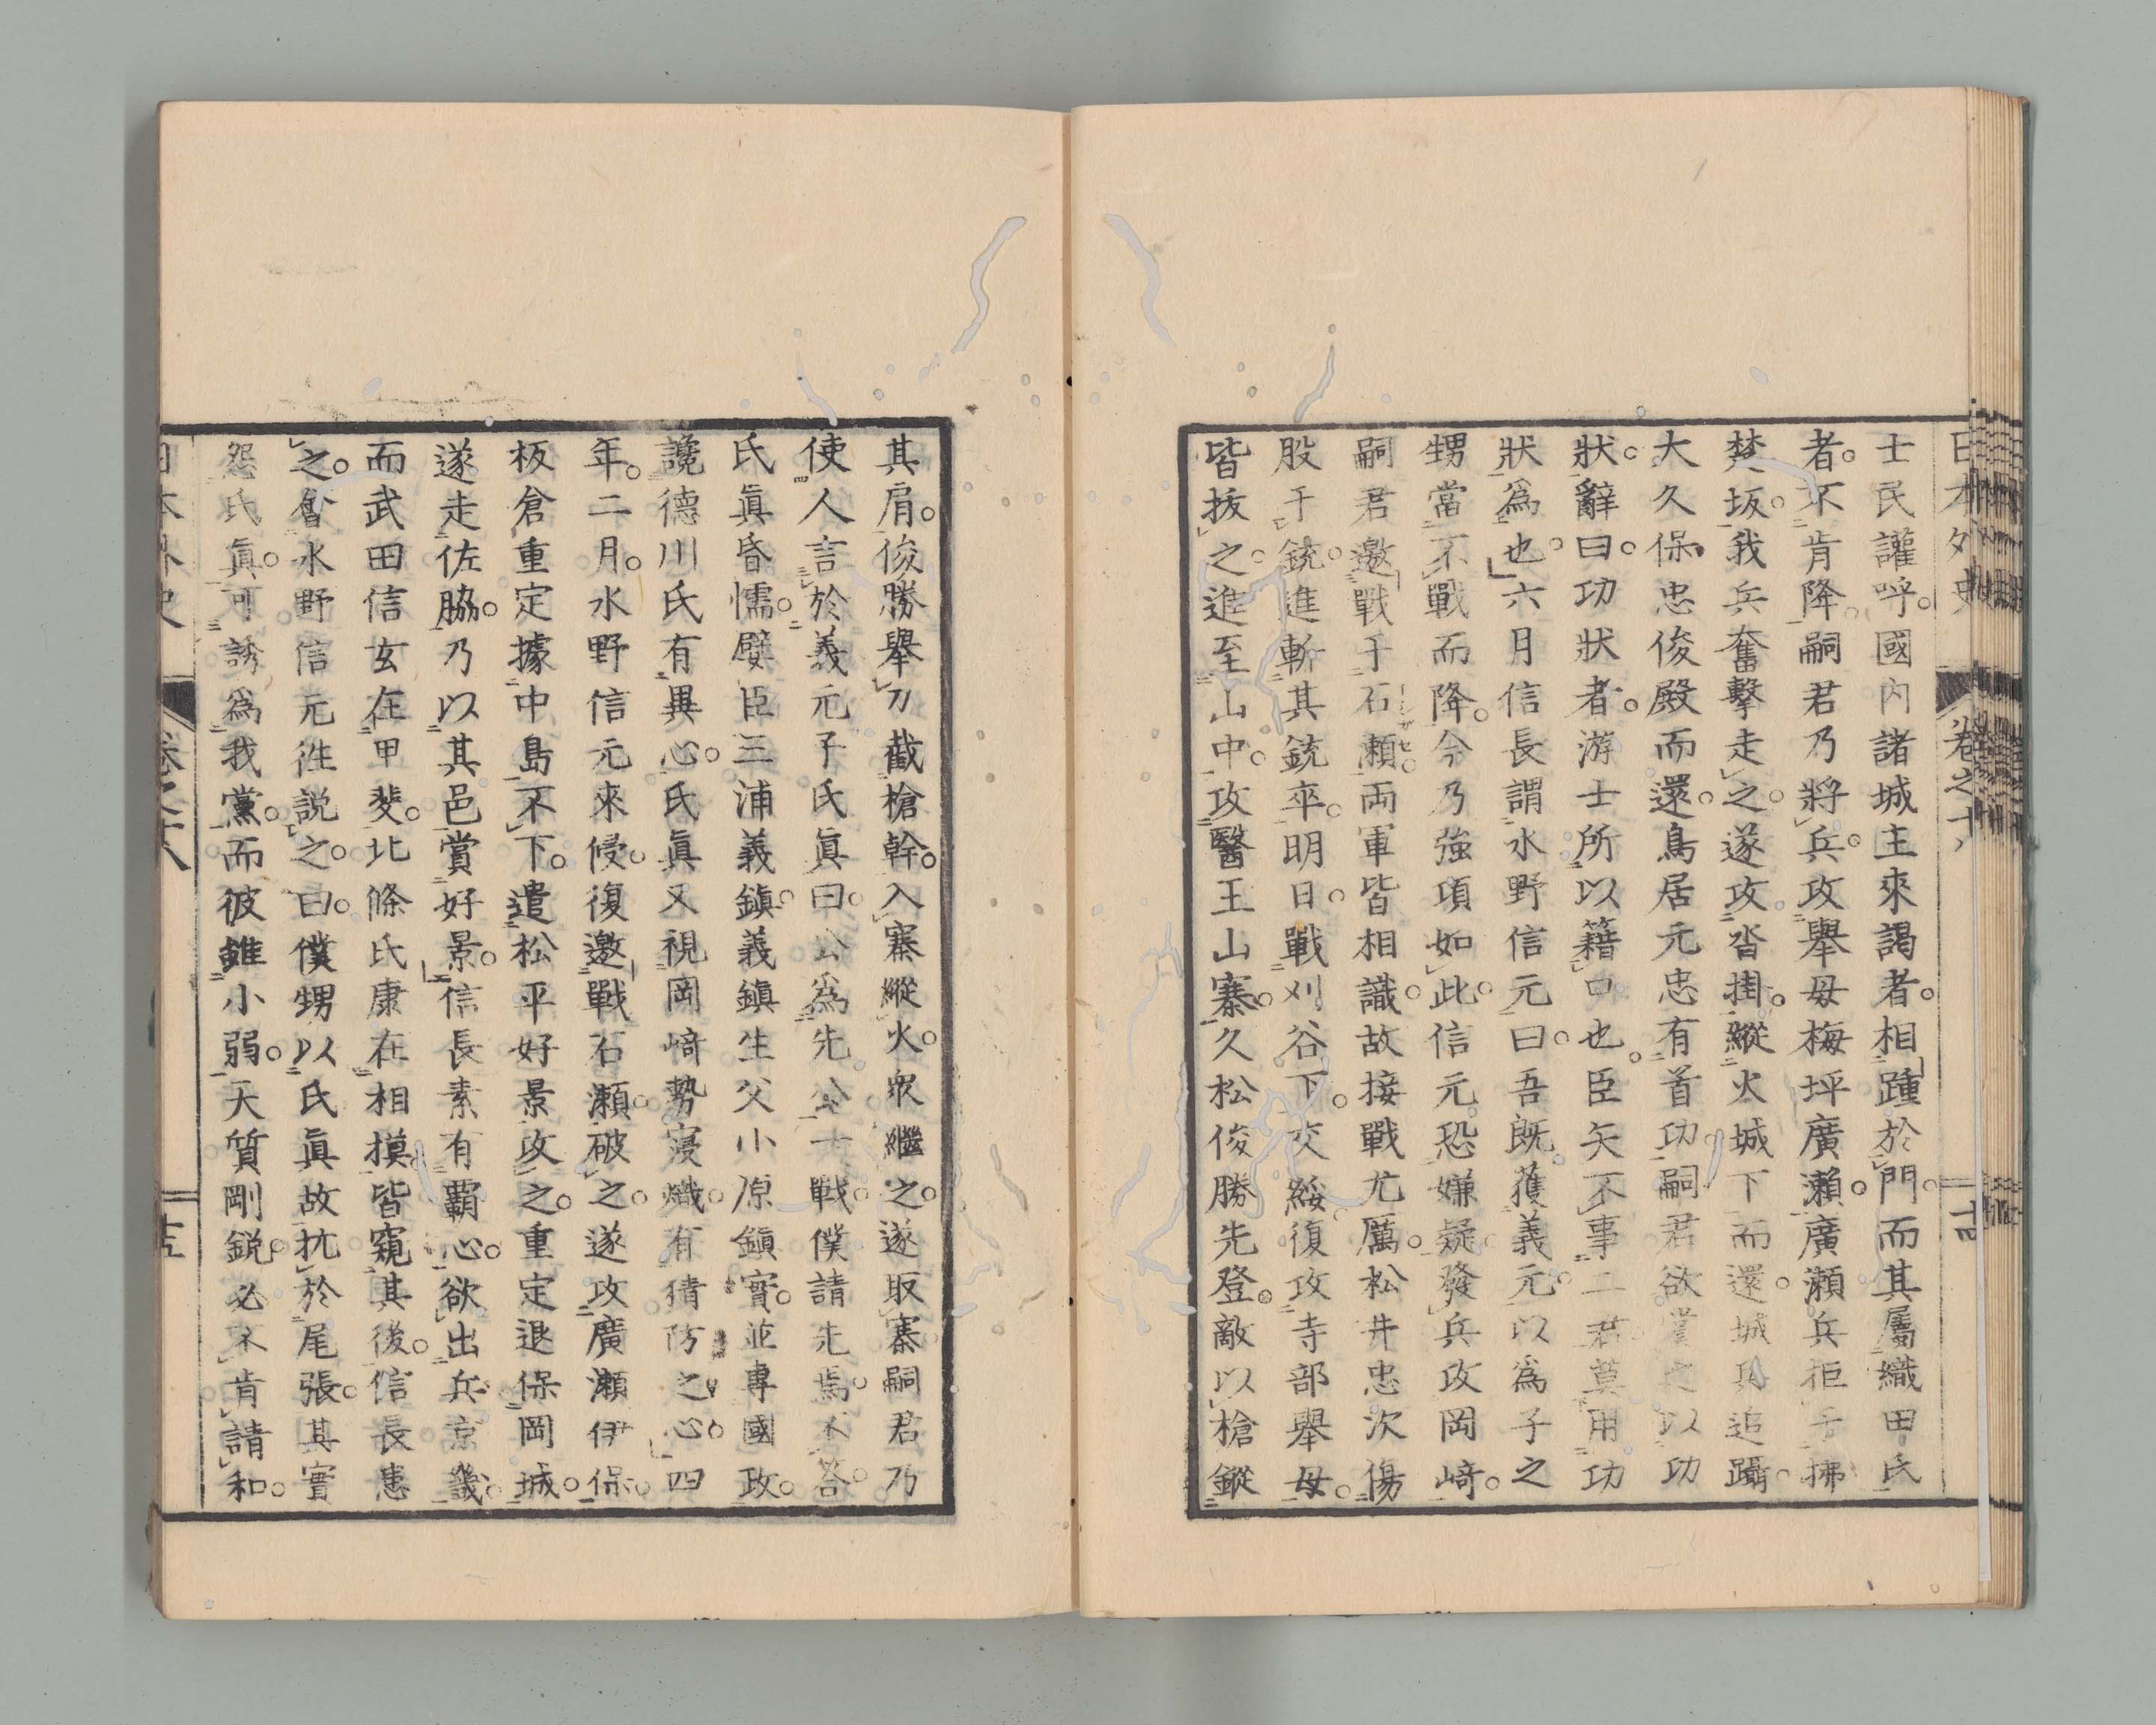 日本外史 卷之十八 十四
士民讙呼。國內諸城主來謁者。相踵於門。而其屬織田氏
者。不肯降。嗣君乃將兵。攻舉母梅坪廣瀨。廣瀨兵拒于拂
楚坂。我兵奮擊走之。遂攻沓掛。縱火城下而還。城兵追躡。
大久保忠俊殿而還。鳥居元忠有首功。嗣君欲賞之以功
狀。辭曰。功狀者。游士所以籍口也。臣矢不事二君。莫用功
狀爲也。六月信長謂水野信元曰。吾既獲義元。以爲子之
甥當不戰而降。今乃強項如此。信元恐嫌疑。發兵攻岡﨑。
嗣君邀戰于石瀨。兩軍皆相識。故接戰尤厲。松井忠次傷
股于銃。進斬其銃卒。明日。戰刈谷下。交綏。復攻寺部舉母。
皆拔之。進至山中。攻醫王山寨。久松俊勝先登。敵以槍鏦
其肩。俊勝舉刀截槍幹。入寨縱火。衆繼之。遂取寨。嗣君乃
使人言於義元子氏眞曰。公爲先公一戰。僕請先焉。不答。
氏眞昏懦。嬖臣三浦義鎭。義鎭生父小原鎭實。並專國政。
讒德川氏有異心。氏眞又視岡﨑勢寖熾。有猜防之心。四
年。二月。水野信元來侵。復邀戰石瀨。破之。遂攻廣瀨伊保。
板倉重定據中島不下。遣松平好景攻之。重定退保岡城。
遂走佐脇。乃以其邑賞好景。信長素有霸心。欲出兵京畿。
而武田信玄在甲斐。北條氏康在相摸。皆窺其後。信長患
之。會水野信元往說之。曰。僕甥以氏眞故抗於尾張。其實
怨氏眞。可誘爲我黨。而彼雖小弱。天質剛銳。必不肯請和。
日本外史 卷之十八 十五